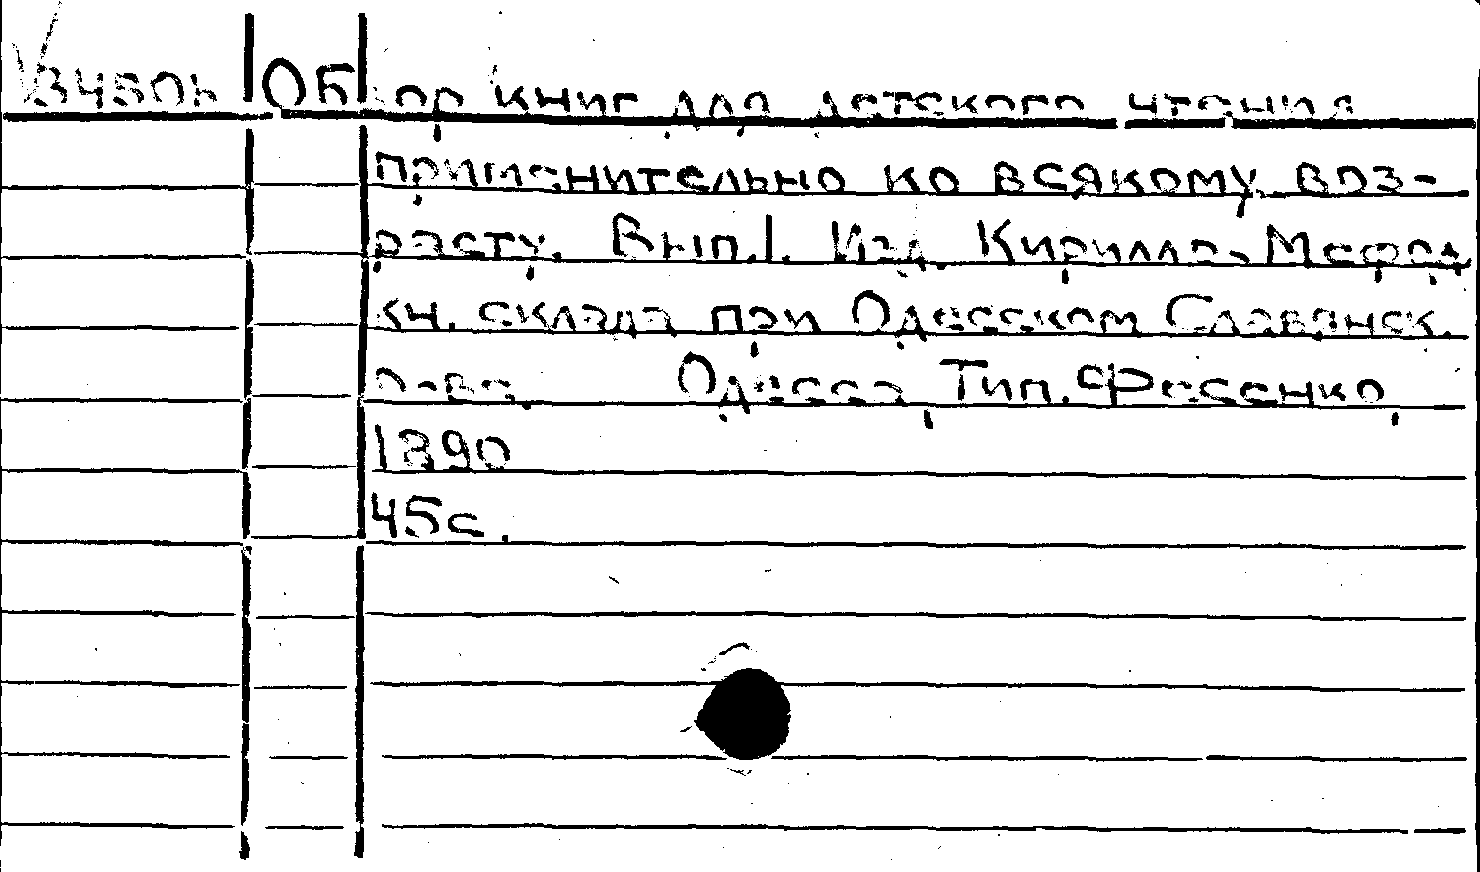 Обзор книг для детского чтения
применительно ко всякому воз-
расту. Вып. 1. Изд. Кирилло-Мефод
кн. склада при Одесском Славянск.
о-ве. Одесса, Тип. Фесенко,
1890
45с.